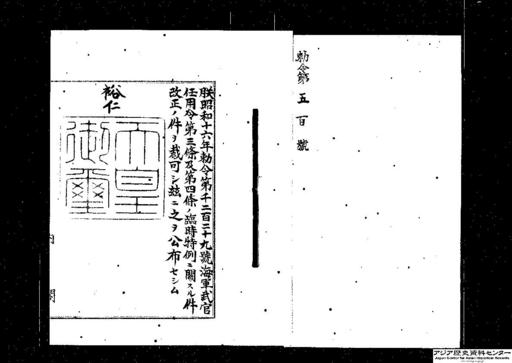 勅令第五百號
朕昭和十六年勅令第千二百二十九號海軍武官
任用令第三條及第四條ノ臨時特例ニ關スル件
改正ノ件ヲ裁可シ玆ニ之ヲ公布セシム
裕仁
天皇
御璽
内閣
アジア歴史資料センター
Japan Center for Asian Historical Records